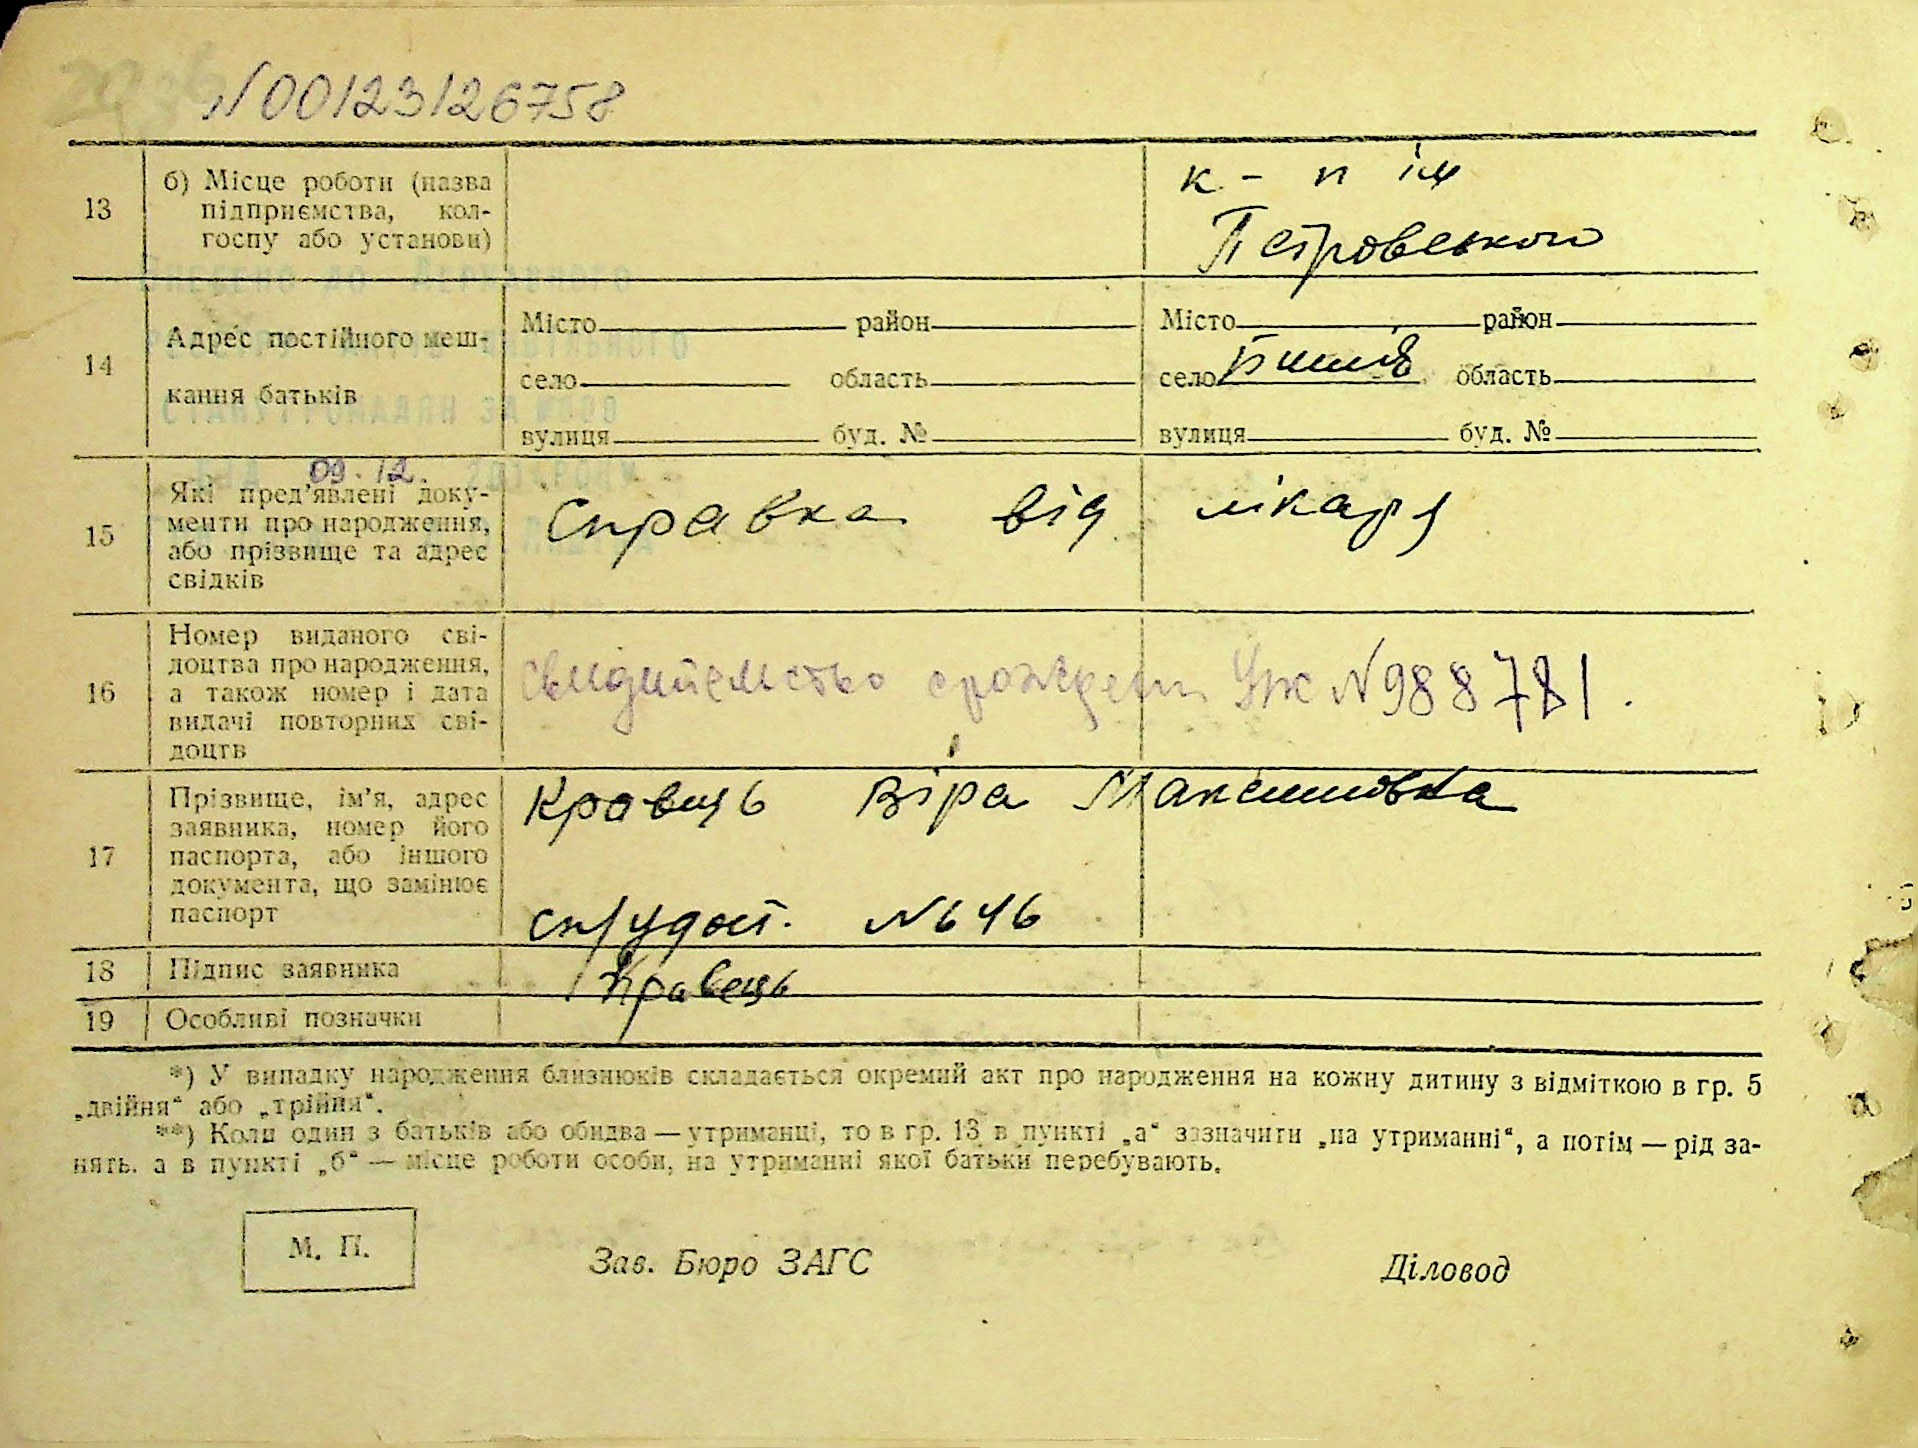 N00123126758
13
б) Місце роботи (назва
підприємства, кол-
госпу або установи)
к-п ім
Петровського
14
Адрес постійного меш-
кання батьків
Місто район
село область
вулиця буд. №
Місто район
село область
вулиця буд. №
09.12.
15
Які пред'явлені доку-
менти про народження,
або прізвище та адрес
свідків
Справка від лікаря
16
Номер виданого сві-
доцтва про народження,
а також номер і дата
видачі повторних сві-
доцтв
N 988781.
17
Прізвище, ім'я, адрес
заявника, номер його
паспорта, або іншого
документа, що замінює
паспорт
Кравець Віра Максимовна
N 646
18
Підпис заявника
Кравець
19
Особливі позначки
*) У випадку народження близнюків складається окремий акт про народження на кожну дитину з відміткою в гр. 5
„двійня“ або „трійня“.
**) Коли один з батьків або обидва — утриманці, то в гр. 13 в пункті „а“ зазначити „на утриманні“, а потім — рід за-
нять, а в пункті „б“ — місце роботи особи, на утриманні якої батьки перебувають.
М. П.
Зав. Бюро ЗАГС
Діловод